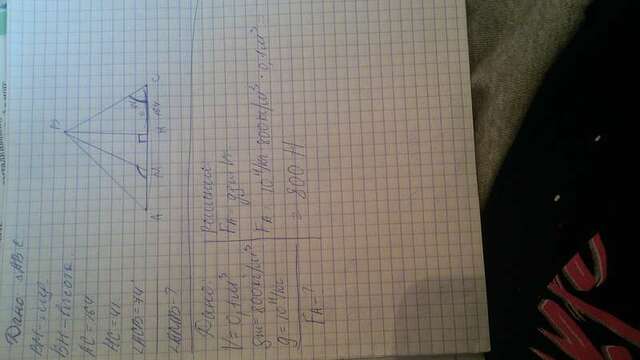 Дано: △ABC
BM - мед.
BH - высота
AC = 164
HC = 41
∠ACB = 74°
∠AMB - ?
B
A
M
H
C
164
Дано:
V = 0,1 м³
gж = 800 кг/м³
g = 10 Н/кг
FA - ?
Решение:
FA = gжV
FA = 10 Н/кг · 800 кг/м³ · 0,1 м³
= 800 Н